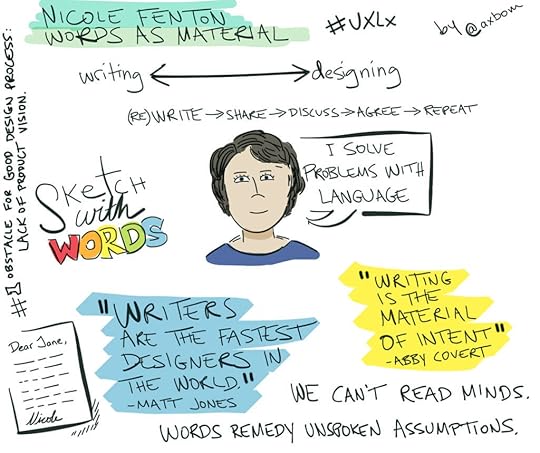 NICOLE FENTON
WORDS AS MATERIAL
#UXLx
by @axbom
writing ↔ designing
(RE)WRITE → SHARE → DISCUSS → AGREE → REPEAT
#1 OBSTACLE FOR GOOD DESIGN PROCESS:
LACK OF PRODUCT VISION.
I SOLVE
PROBLEMS WITH
LANGUAGE
SKetCH
with
WORDS
"WRITERS
ARE THE FASTEST
DESIGNERS IN
THE WORLD."
-MATT JONES
"WRITING
IS THE
MATERIAL
OF INTENT"
-ABBY COVERT
Dear Jane,
Nicole
WE CAN'T READ MINDS.
WORDS REMEDY UNSPOKEN ASSUMPTIONS.